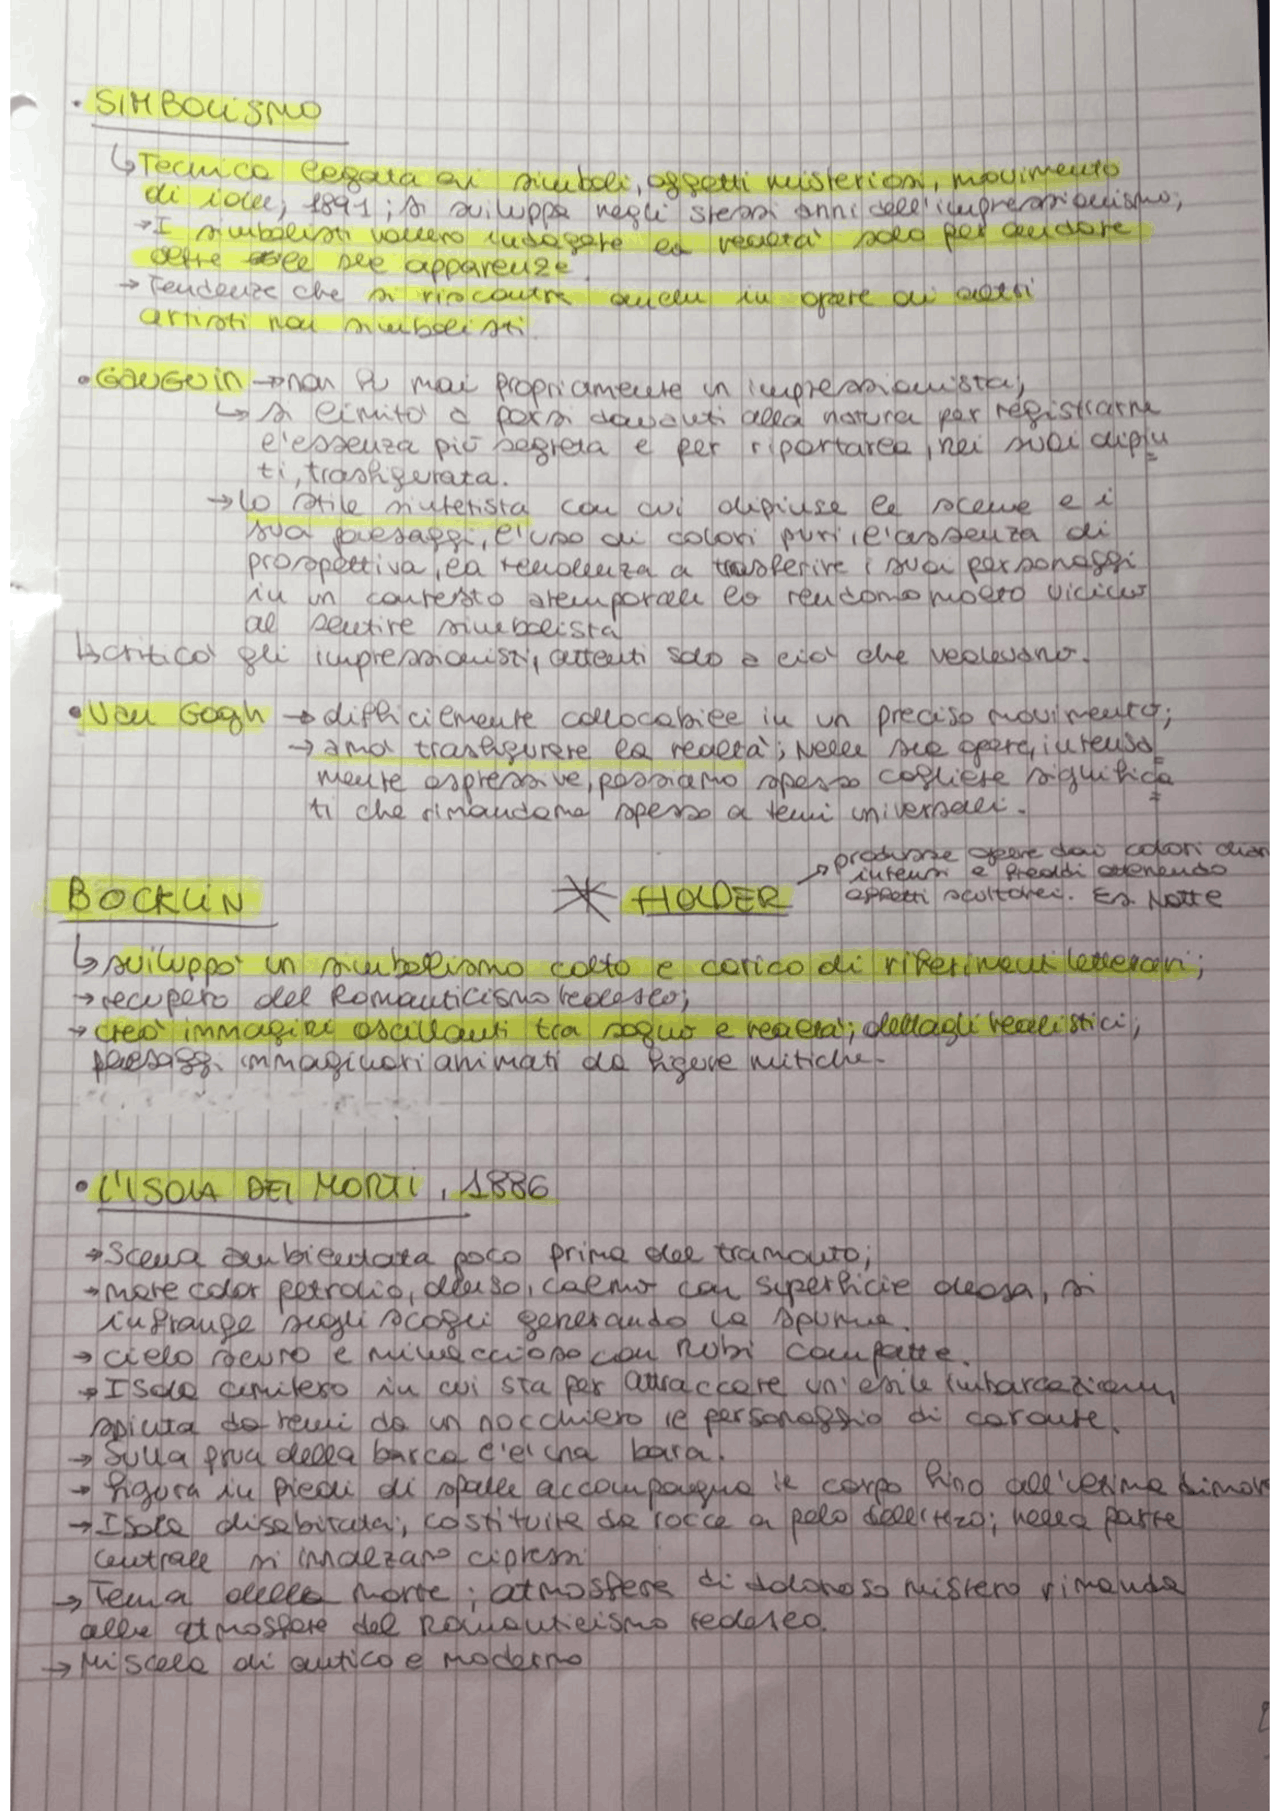 • SIMBOLISMO
↳ Tecnica legata ai simboli, oggetti misteriosi, movimento
di idee, 1891; si sviluppa negli stessi anni dell'impressionismo;
→ I simbolisti vollero indagare la realtà solo per andare
oltre alle sue apparenze.
→ Tendenze che si riscontra anche in opere di altri
artisti non simbolisti.
• GAUGUIN → non fu mai propriamente un impressionista;
↳ si limitò a porsi davanti alla natura per registrarne
l'essenza più segreta e per riportarla, nei suoi dipin
ti, trasfigurata.
→ Lo stile sintetista con cui dipinse le scene e i
suoi paesaggi, l'uso di colori puri, l'assenza di
prospettiva, la tendenza a trasferire i suoi personaggi
in un contesto atemporale lo rendono molto vicino
al sentire simbolista
↳ criticò gli impressionisti, attenti solo a ciò che vedevano.
• Van Gogh → difficilmente collocabile in un preciso movimento;
→ amò trasfigurare la realtà; Nelle sue opere, intensa
mente espressive, possiamo spesso cogliere significa
ti che rimandano spesso a temi universali.
→ produsse opere dai colori
intensi e freddi ottenendo
BOCKLIN * HOLDER effetti scultorei. Es. Notte
↳ sviluppò un simbolismo colto e carico di riferimenti letterari;
→ recupero del Romanticismo tedesco;
→ creò immagini oscillanti tra sogno e realtà; dettagli realistici,
paesaggi immaginari animati da figure mitiche.
• L'ISOLA DEI MORTI, 1886
→ Scena ambientata poco prima del tramonto;
→ mare color petrolio, denso, calmo con superficie oleosa, si
infrange sugli scogli generando la spuma.
→ cielo scuro e minaccioso con nubi compatte.
→ Isola cimitero in cui sta per attraccare un'esile imbarcazione,
spinta da remi da un nocchiero le personaggio di caronte.
→ Sulla prua della barca c'è una bara.
→ figura in piedi di spalle accompagna il corpo fino all'ultima dimora
→ Isola disabitata, costituita da rocce a pelo dell'; nella parte
centrale si innalzano cipressi
→ Tema della morte; atmosfere di doloroso mistero rimanda
alle atmosfere del Romanticismo tedesco.
→ Miscela di antico e moderno